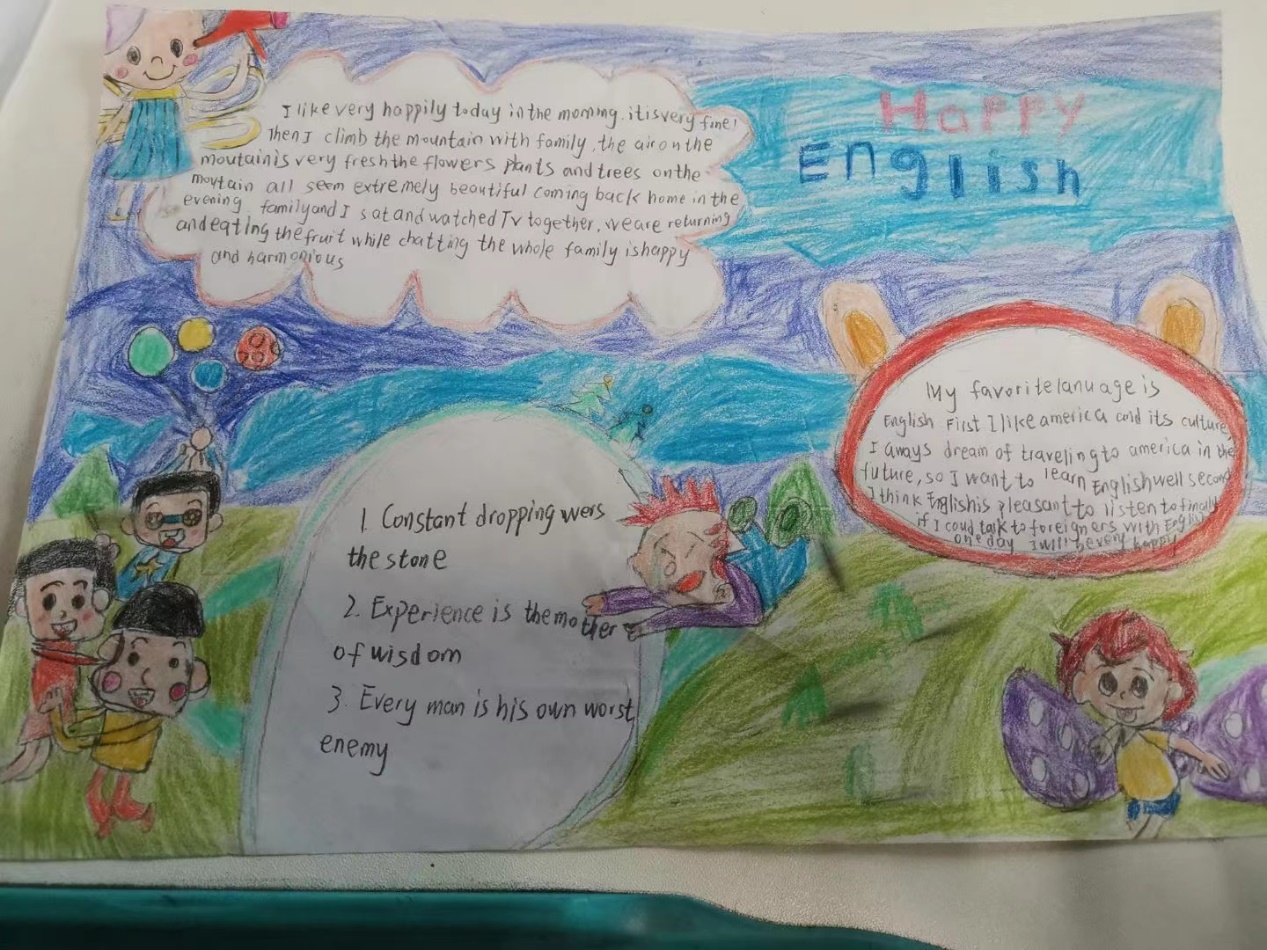 Happy
English
I like very happily today in the morning. it is very fine!
Then I climb the mountain with family, the air on the
moutain is very fresh the flowers plants and trees on the
moutain all seem extremely beautiful coming back home in the
evening family and I sat and watched Tv together, we are returning
and eating the fruit while chatting the whole family is happy
and harmonious
My favorite lanuage is
English First I like america and its culture
I aways dream of traveling to america in the
future, so I want to learn English well second
I think English is pleasant to listen to finally
if I coud talk to foreigners with English
one day I will be very happy
1. Constant dropping wers
the stone
2. Experience is the mother
of wisdom
3. Every man is his own worst
enemy